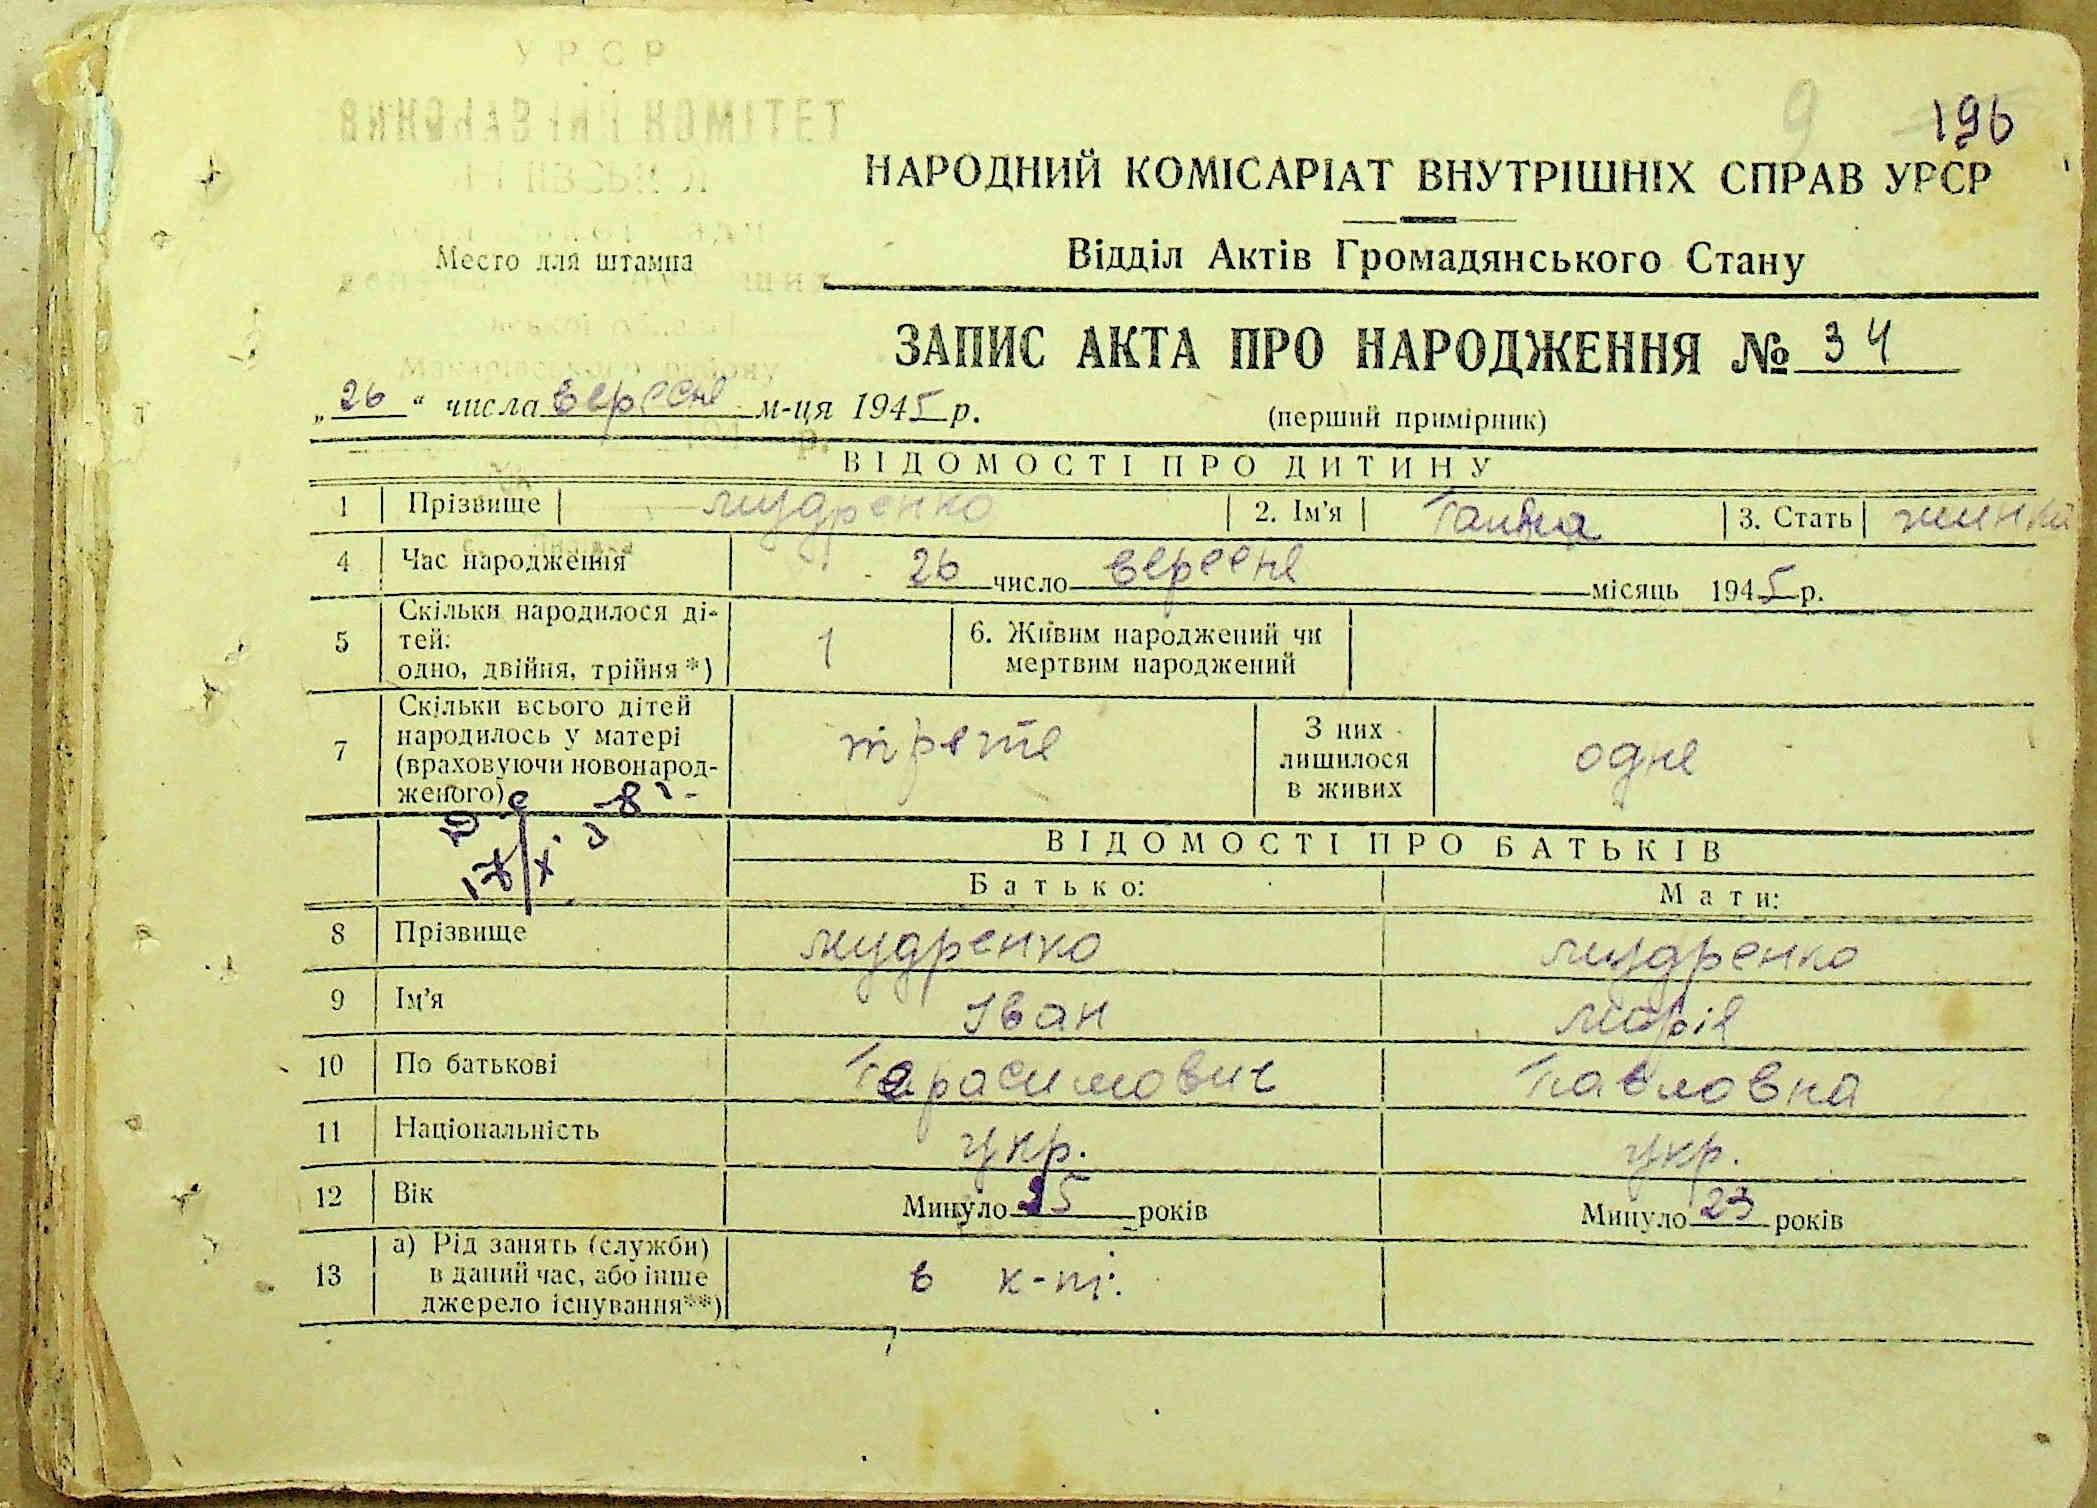 УРСР
ВИКОНАВЧИЙ КОМІТЕТ
196
НАРОДНИЙ КОМІСАРІАТ ВНУТРІШНІХ СПРАВ УРСР
Место для штампа
Відділ Актів Громадянського Стану
ЗАПИС АКТА ПРО НАРОДЖЕННЯ № 34
„26“ числа вересня м-ця 1945 р.
(перший примірник)
ВІДОМОСТІ ПРО ДИТИНУ
1 Прізвище Мудренко 2. Ім'я Ганна 3. Стать жинка
4 Час народження 26 число вересня місяць 1945 р.
5 Скільки народилося ді-
тей:
одно, двійня, трійня *) 1 6. Живим народжений чи
мертвим народжений
7 Скільки всього дітей
народилось у матері
(враховуючи новонарод-
женого) трете З них
лишилося
в живих одне
ВІДОМОСТІ ПРО БАТЬКІВ
Батько: Мати:
8 Прізвище Мудренко Мудренко
9 Ім'я Іван Марія
10 По батькові Герасимович Павловна
11 Національність укр. укр.
12 Вік Минуло 25 років Минуло 23 років
13 а) Рід занять (служби)
в даний час, або інше
джерело існування**) в к-пі